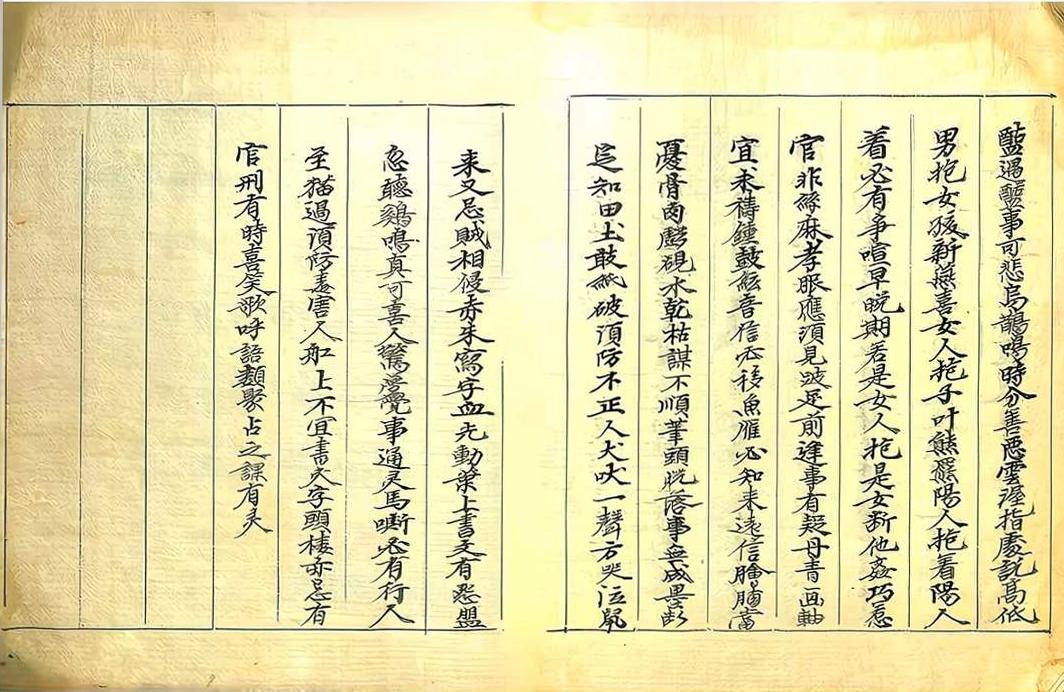 盬過醆事可悲烏鵲鳴時分善惡雲握指處託高低
男抱女孩新慕喜女人抱子叶熊羆陽人抱着陽人
着必有争喧早晚期若是女人抱是女断他姦巧意
官非絲麻孝眼應須見跛足前逢事有疑丹青画軸
宜求禱鍾鼓絃音信必移魚雁必知来遠信膾胸當
憂骨肉鹿硯水乾枯謀不順筆頭脱落事無成畏
是知田土敢紙破湏防不正人犬吠一聲方哭泣鼠
来又忌贼相侵赤朱寫字血光動葉上書文有怨盟
忽聽鷄鳴真可喜人驚夢覺事通灵馬嘶必有行人
至猫過湏防毒害人船上不宜書火字頭棲亦忌有
官刑有時喜笑歌呼語類聚占之課有灵